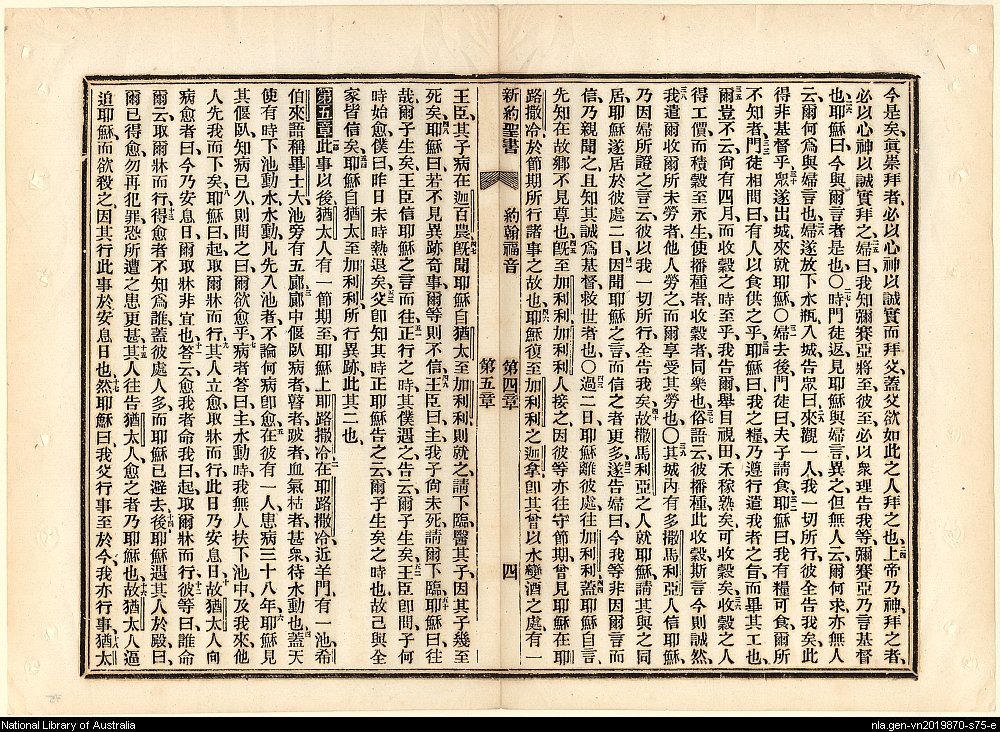 今是矣、眞崇拜者、必以心神以誠實而拜父、蓋父欲如此之人拜之也、上帝乃神、拜之者、
必以心神以誠實拜之、婦曰、我知彌賽亞將至、彼至必以衆理告我等、彌賽亞乃言基督
也、耶穌曰、今與爾言者是也、〇時門徒返、見耶穌與婦言異之、但無人云、爾何求、亦無人
云、爾何爲與婦言也、婦遂放下水瓶、入城告眾曰、來觀一人、我一切所行、彼全告我矣、此
得非基督乎、眾遂出城來就耶穌、〇婦去後、門徒曰、夫子請食、耶穌曰、我有糧可食、爾所
不知者、門徒相問曰、有人以食供之乎、耶穌曰、我之糧乃遵行遣我者之旨、而畢其工也、
爾豈不云、尚有四月、而收穀之時至乎、我告爾、舉目視田、禾稼熟矣、可收穀矣、收穀之人
得工價、而積穀至永生、使播種者收穀者同樂也、俗語云、彼播種、此收穀、斯言今則誠然、
我遣爾收爾所未勞者、他人勞之、而爾享受其勞也、〇其城內有多撒馬利亞人信耶穌、
乃因婦所證之言云、彼以我一切所行、全告我矣、故撒馬利亞之人就耶穌、請其與之同
居、耶穌遂居於彼處二日、因聞耶穌之言、而信之者更多、遂告婦曰、今我等非因爾言而
信、乃親聞之、且知其誠爲基督救世者也、〇過二日、耶穌離彼處、往加利利、蓋耶穌自言、
先知在故鄉不見尊也、旣至加利利、加利利人接之、因彼等亦往守節期、曾見耶穌在耶
路撒冷於節期所行諸事之故也、耶穌復至加利利之迦拿、卽其曾以水變酒之處、有一
新約聖書 約翰福音 第四章 四
第五章
王臣、其子病在迦百農、旣聞耶穌自猶太至加利利、則就之、請下臨醫其子、因其子幾至
死矣、耶穌曰、若不見異跡奇事、爾等則不信、王臣曰、主、我子尚未死、請爾下臨、耶穌曰、往
哉、爾子生矣、王臣信耶穌之言而往、正行之時、其僕遇之、告云、爾子生矣、王臣卽問子何
時始愈、僕曰、昨日未時熱退矣、父卽知其時正耶穌告之云、爾子生矣之時也、故己與全
家皆信矣、耶穌自猶太至加利利、所行異跡、此其二也、
第五章 此事以後、猶太人有一節期至、耶穌上耶路撒冷、在耶路撒冷近羊門有一池、希
伯來語稱畢士大、池旁有五廊、廊中偃臥病者瞽者跛者血氣枯者甚衆、待水動也、蓋天
使有時下池動水、水動凡先入池者、不論何病卽愈、在彼有一人、患病三十八年、耶穌見
其偃臥、知病已久、則問之曰、爾欲愈乎、病者答曰、主、水動時、我無人扶下池中、及我來、他
人先我而下矣、耶穌曰、起、取爾牀而行、其人立愈、取牀而行、此日乃安息日、故猶太人向
病愈者曰、今乃安息日、爾取牀非宜也、答云、愈我者命我曰、起取爾牀而行、彼等曰、誰命
爾云、取爾牀而行、得愈者不知爲誰、蓋彼處人多、而耶穌已避去、後耶穌遇其人於殿曰、
爾已得愈、勿再犯罪、恐所遭之患更甚、其人往告猶太人、愈之者乃耶穌也、故猶太人逼
迫耶穌、而欲殺之、因其行此事於安息日也、然耶穌曰、我父行事至於今、我亦行事、猶太
National Library of Australia
nla.gen-vn2019870-s75-e